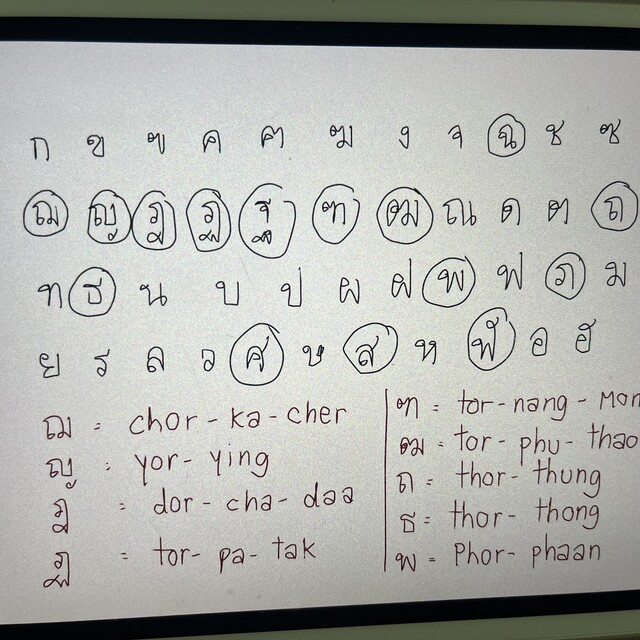 ก ข ฃ ค ฅ ฆ ง จ ฉ ช ซ
ฌ ญ ฎ ฏ ฐ ฑ ฒ ณ ด ต ถ
ท ธ น บ ป ผ ฝ พ ฟ ภ ม
ย ร ล ว ศ ษ ส ห ฬ อ ฮ
ฌ = chor - ka - cher
ญ : yor - ying
ฎ = dor - cha - daa
ฏ = tor - pa - tak
ฑ = tor - nang - Mon
ฒ = tor - phu - thao
ถ = thor - thung
ธ = thor - thong
พ = Phor - phaan